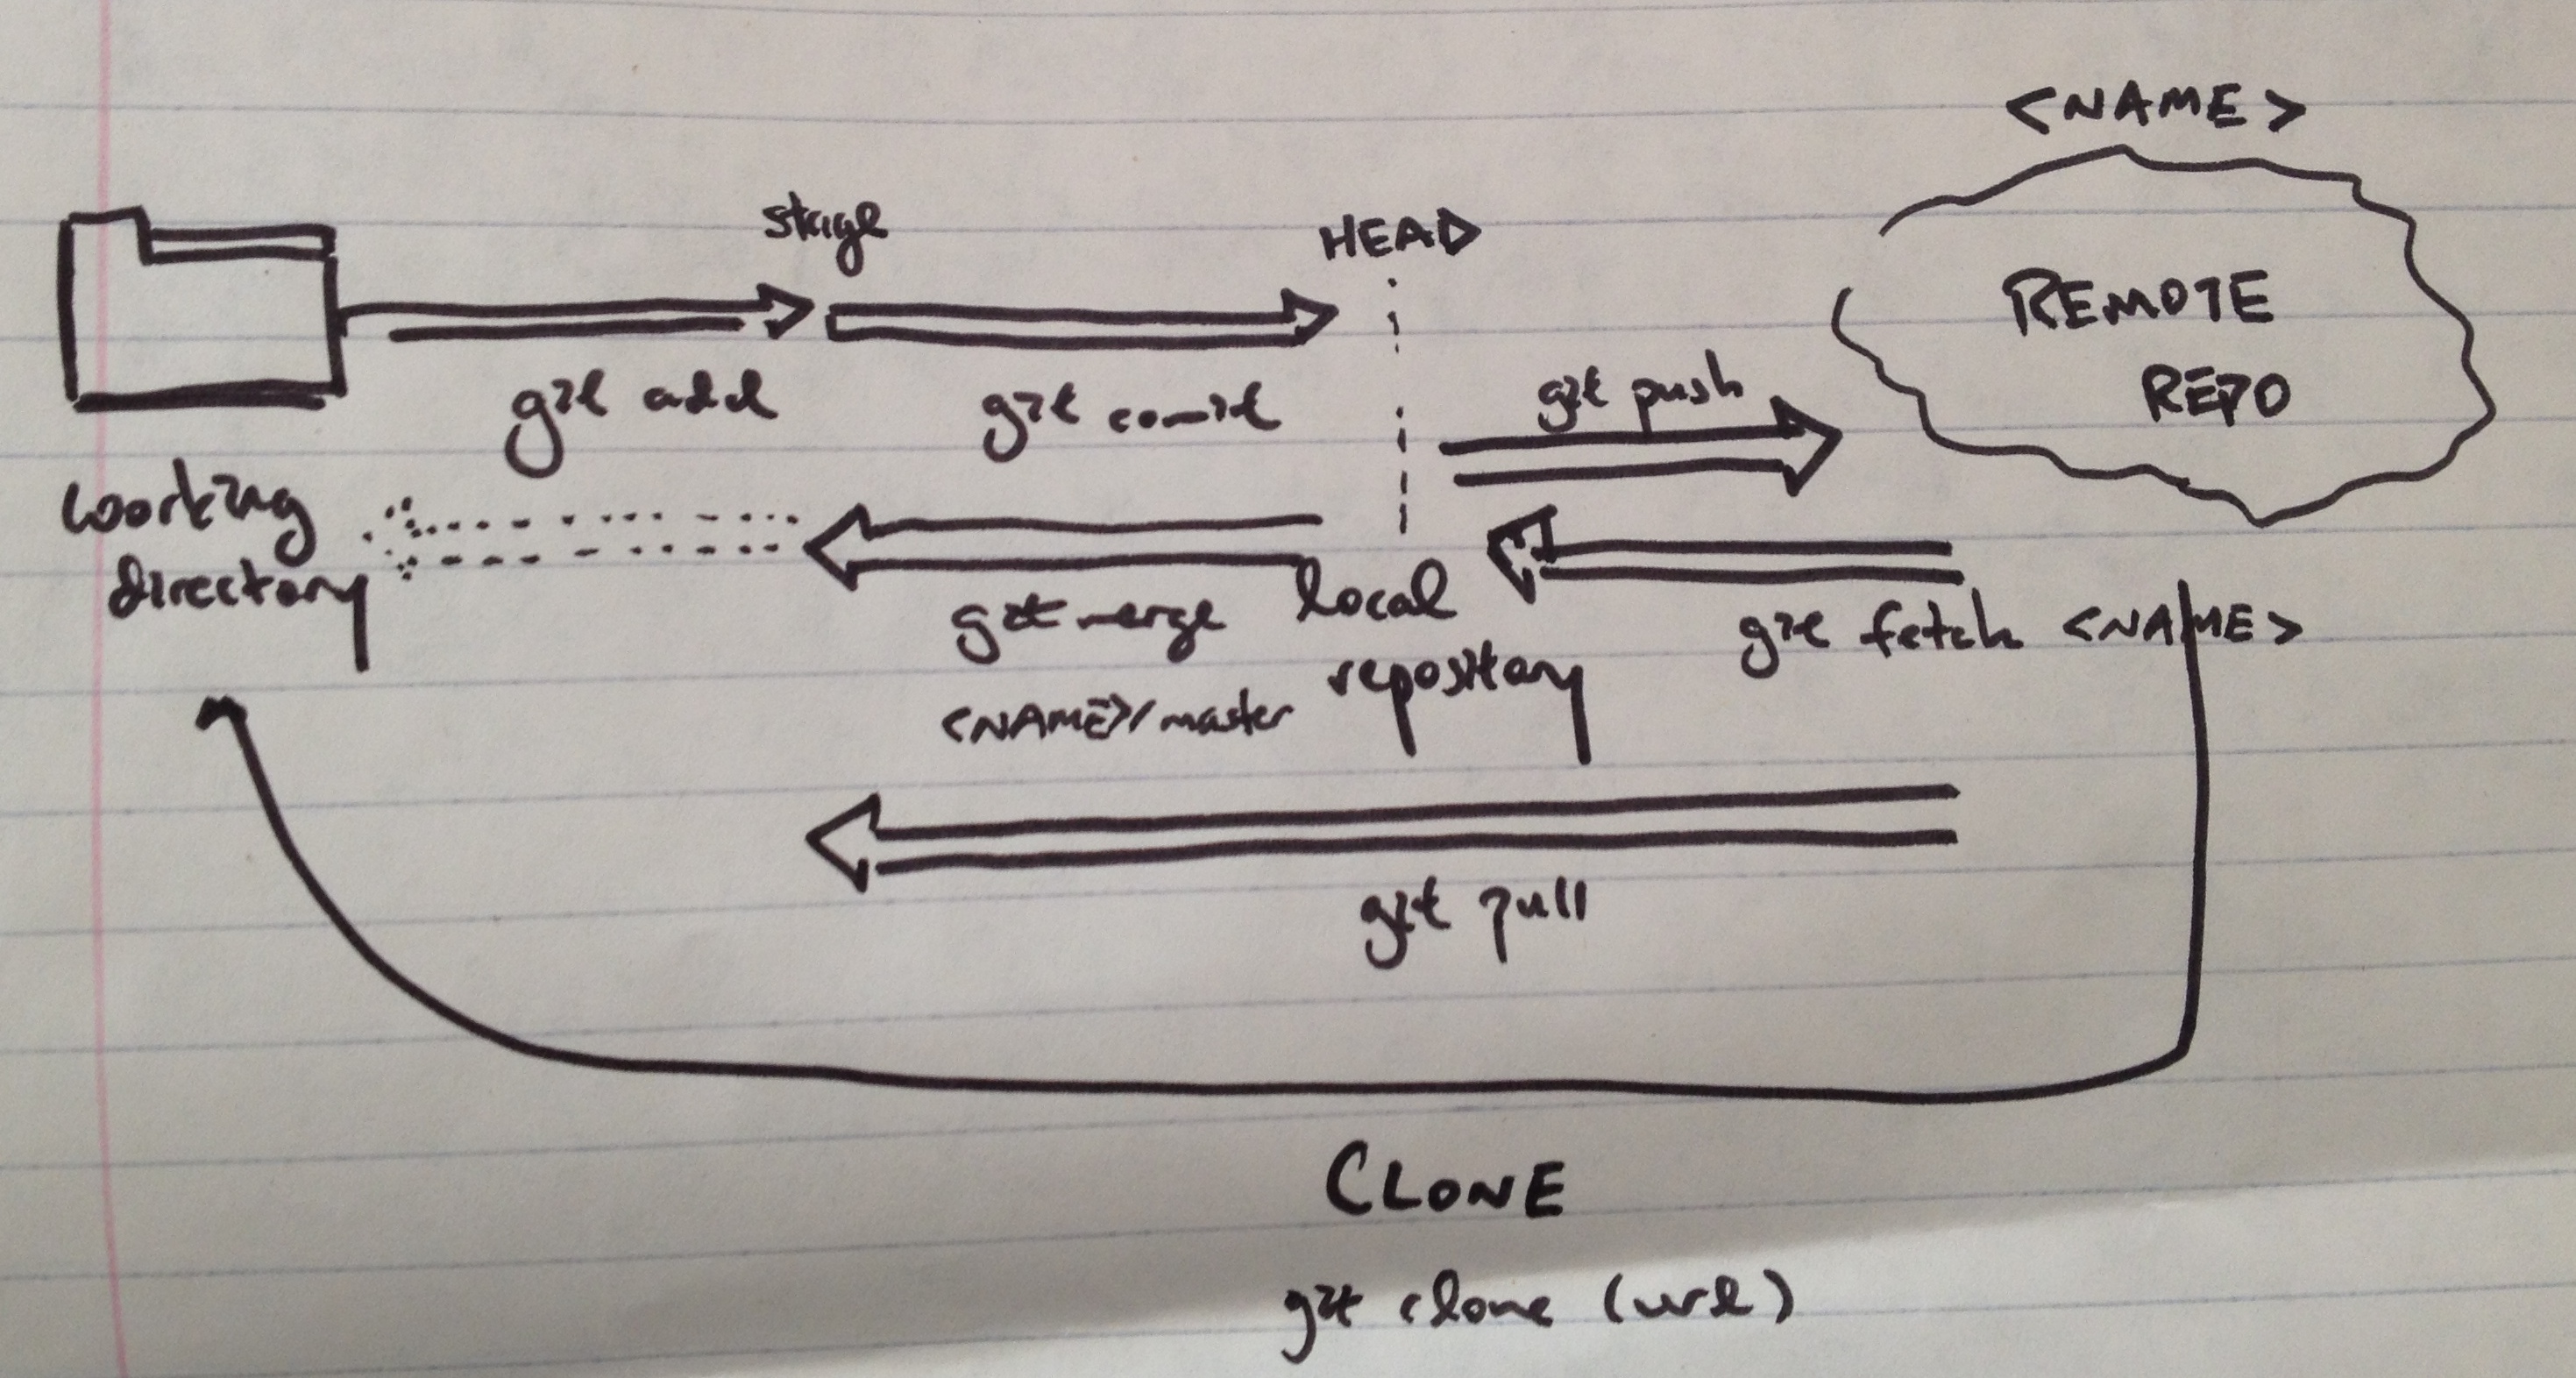 <NAME>
stage
HEAD
REMOTE
REPO
git add
git comit
git push
working
directory
git merge
<NAME>/master
local
repository
git fetch <NAME>
git pull
CLONE
git clone (url)